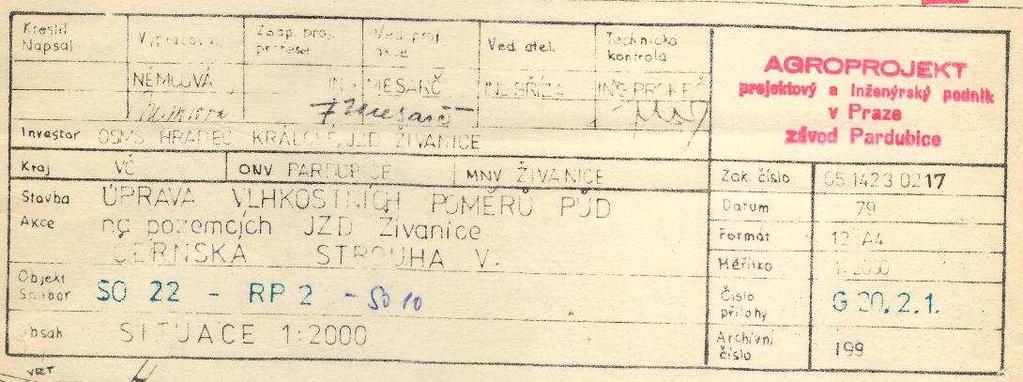 Kreslil
Napsal
Vypracoval
Zodp. proj.
profese
Ved. proj.
akce
Ved. atel.
Technická
kontrola
NĚMCOVÁ
ING MESARČ
ING BŘÍZA
ING PROKEŠ
AGROPROJEKT
projektový a inženýrský podnik
v Praze
závod Pardubice
Investor OSMS HRADEC KRÁLOVÉ, JZD ŽIVANICE
Kraj VČ ONV PARDUBICE MNV ŽIVANICE
Zak. číslo 05 1423 0217
Stavba ÚPRAVA VLHKOSTNÍCH POMĚRŮ PŮD
Akce na pozemcích JZD Živanice
STROUHA V.
Datum 79
Formát 12 A4
Měřítko 1:2000
Objekt
Soubor SO 22 - RP 2 - SO 10
Číslo
přílohy G 20.2.1.
Obsah SITUACE 1:2000
Archivní
číslo 199
VRT